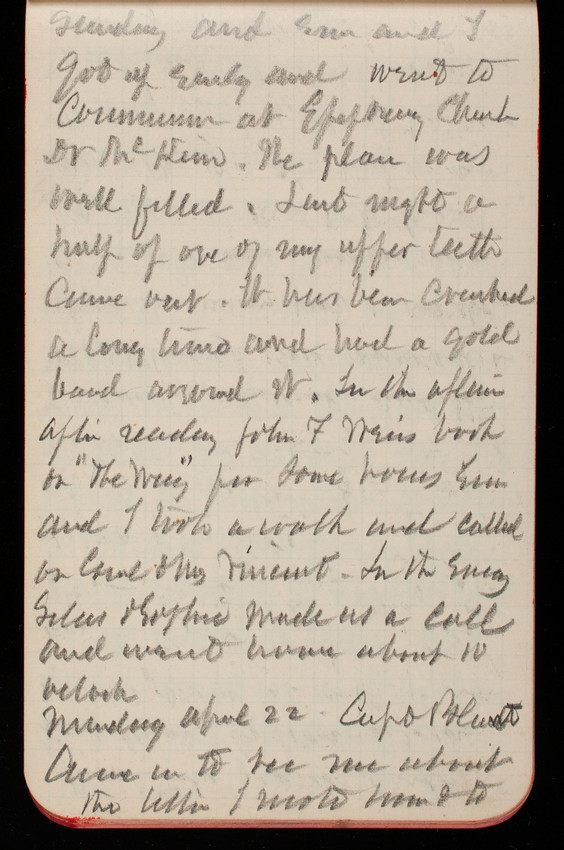 Sunday and Em and I
got up early and went to
Communion at Epiphany Church
Dr McKim. The place was
well filled. Last night a
half of one of my upper teeth
came out. It has been cracked
a long time and had a gold
band around it. In the
after reading John F Weirs book
on "The Way" for some hours Em
and I took a walk and called
on Col & Mrs Vincent. In the
Silas & Sophie made us a call
and went home about 10
oclock
Monday April 22 Capt
Came in to see me about
the letter I wrote him & to